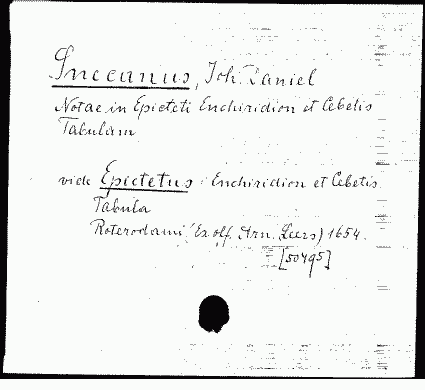 Snecanus, Joh. Daniel
Notae in Epicteti Enchiridion et Cebetis
Tabulam
vide Epictetus: Enchiridion et Cebetis
Tabula
Roterodami (Ex off. Arn. Leers) 1654.
[50495]